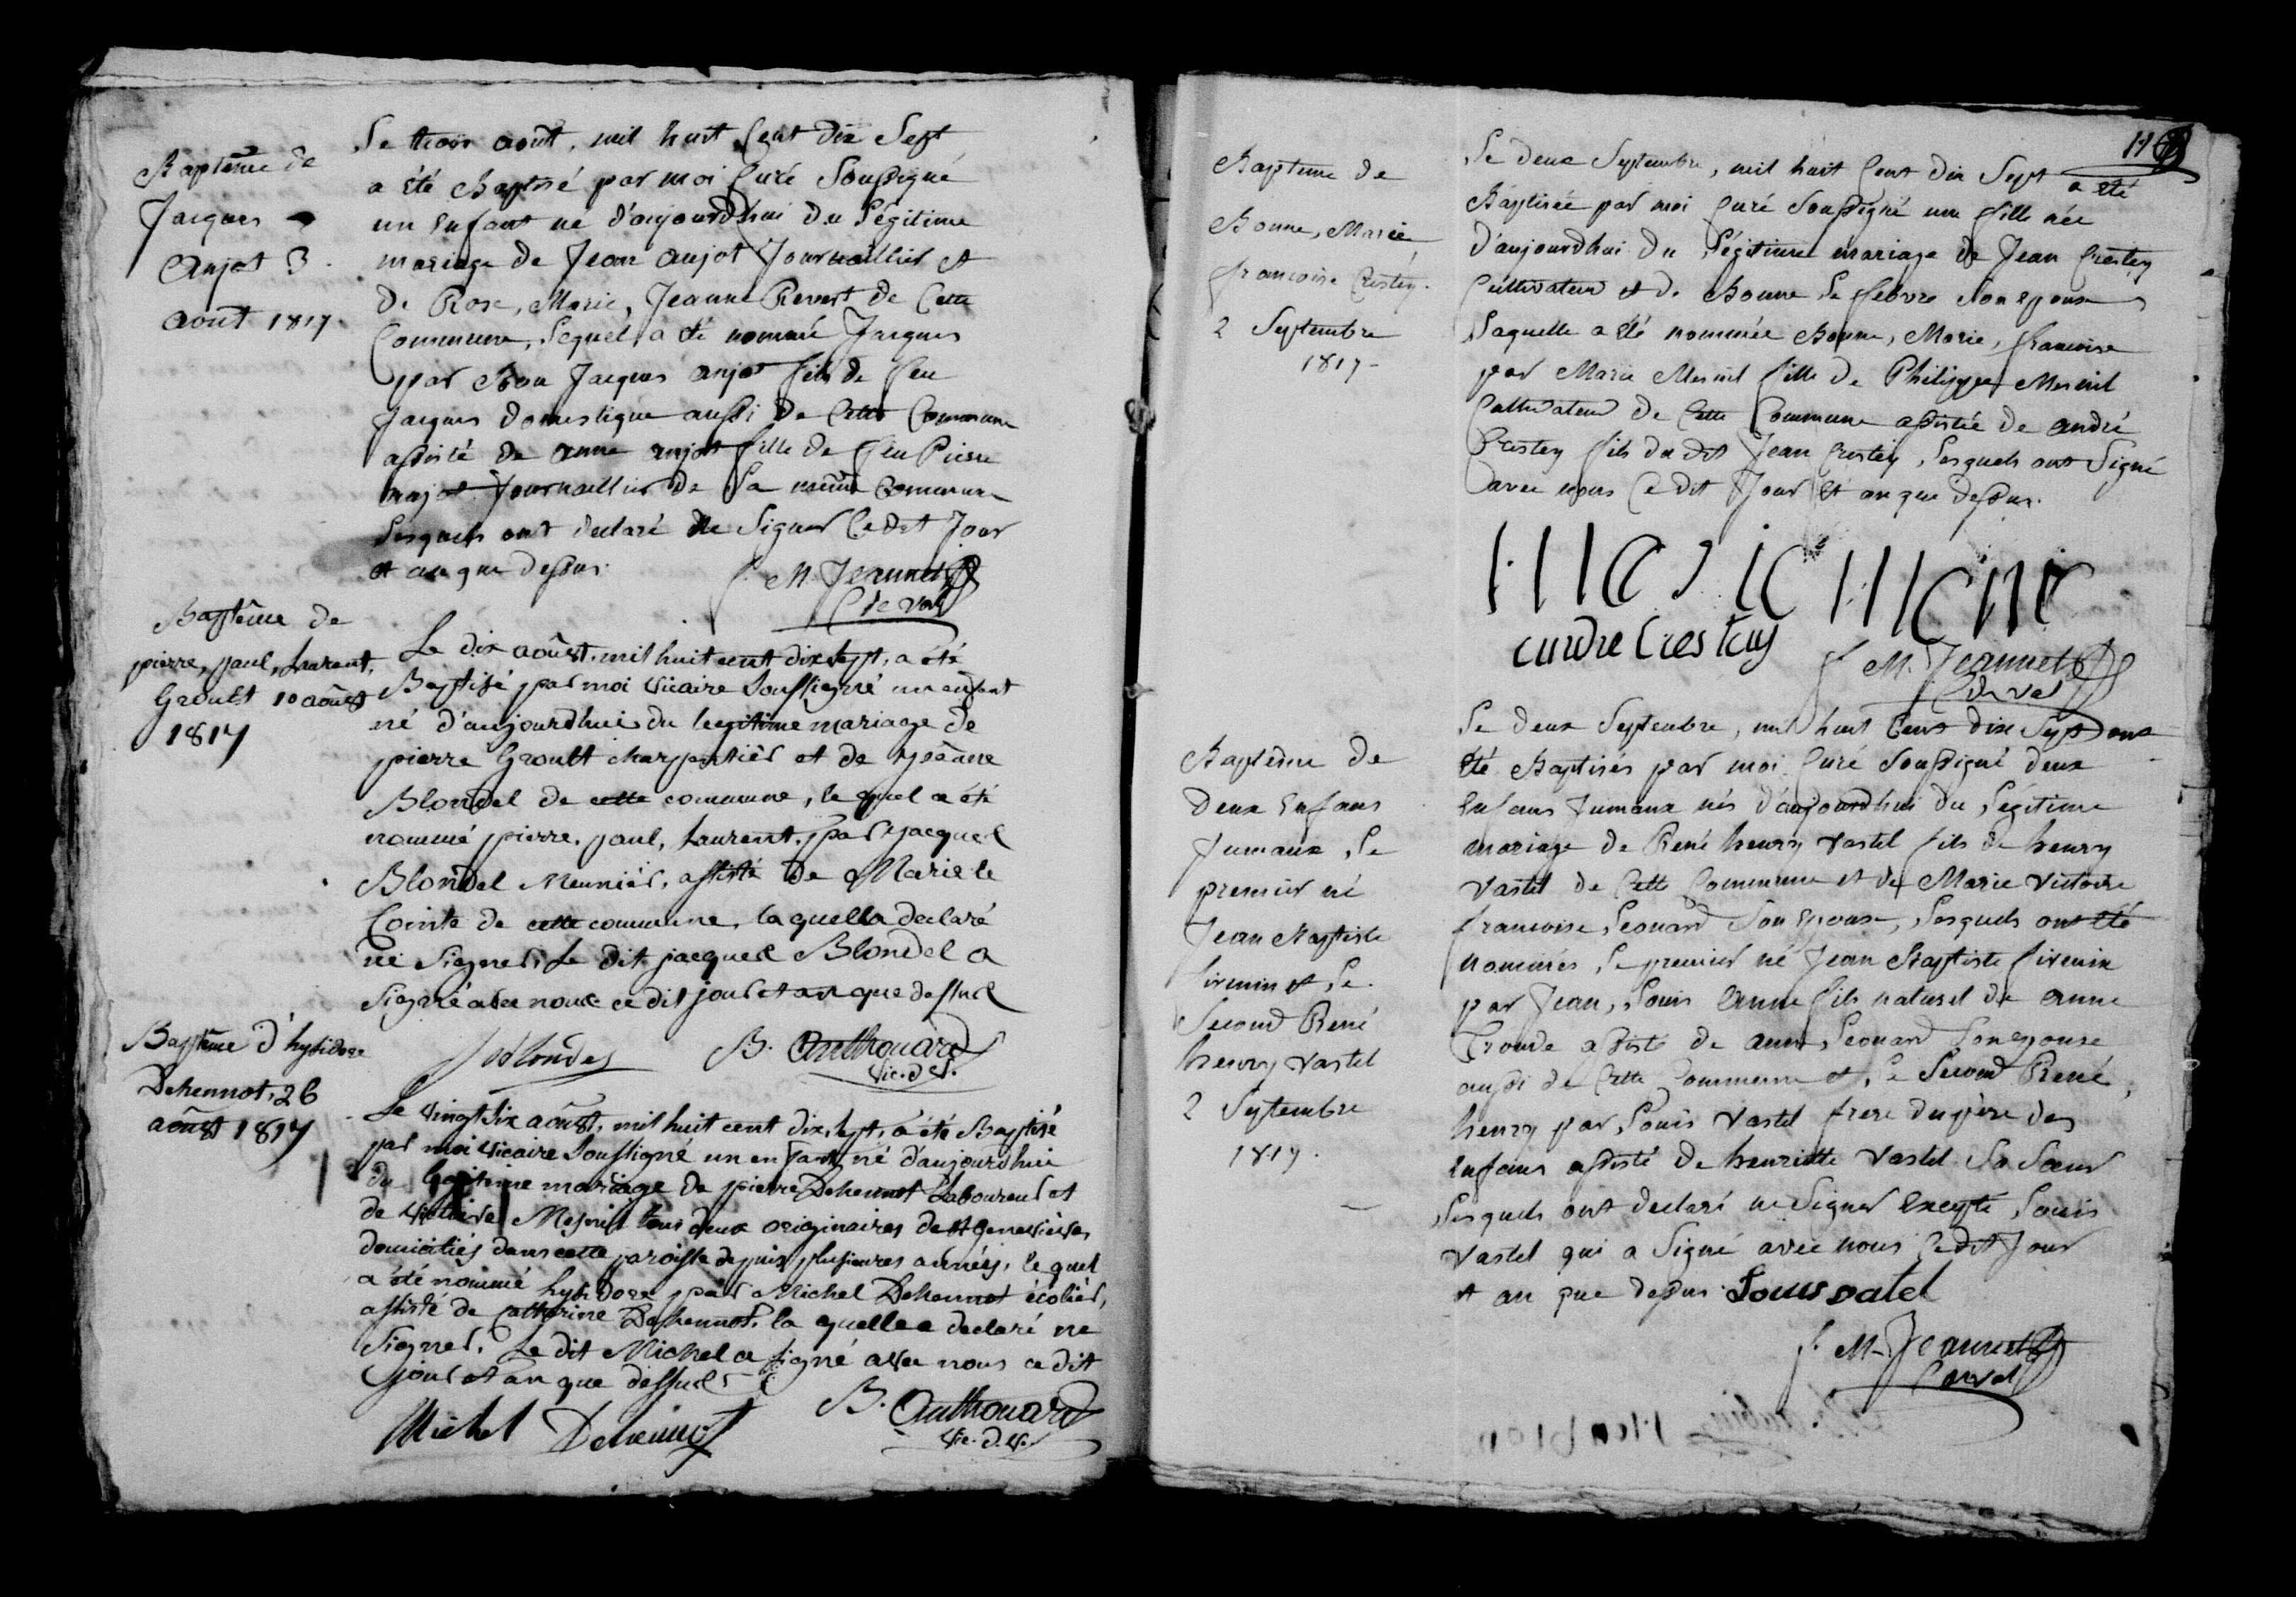 Baptême de
Jacques
Anjot 3
aout 1817
Le trois août, mil huit Cent dix Sept
a été Baptisé par moi Curé Soussigné
un Enfant né d'aujourdhui du Légitime
mariage de Jean anjot Journaillier et
de Rose, Marie, Jeanne Revert de Cette
Commune, Lequel a été nommé Jacques
par Bon Jacques anjot fils de feu
Jacques domestique aussi de Cette Commune
assisté de anne anjot fille de feu Pierre
anjot Journaillier de La même Commune
Lesquels ont declaré ne Signer Ce dit Jour
et an que dessus.
f. M. Jeannet
C de val
Baptême de
pierre, paul, laurent,
Groult 10 août
1817
Le dix août, mil huit cent dix sept, a été
Baptisé par moi vicaire Soussigné un enfant
né d'aujourdhui du legitime mariage de
pierre Groult charpentier et de jeanne
Blondel de cette commune, le quel a été
nommé pierre, paul, laurent, par jacques
Blondel Meunier, assisté de Marie le
Cointe de cette commune, la quelle a declaré
ne Signer, Le dit jacques Blondel a
Signé avec nous ce dit jour et an que dessus
J Blondel B. Anthouard
vic. de v.
Baptême d'hylidore
Dehennot, 26
août 1817
Le vingt six août, mil huit cent dix, sept, a été Baptisé
par moi vicaire Soussigné un enfant né d'aujourdhui
du legitime mariage de pierre Dehennot Laboureur et
de victoire Mesnil tous deux originaires de st Genevieve
domiciliés dans cette paroisse depuis plusieures années, le quel
a été nommé hylidore par Michel Dehennot écolier,
assisté de Catherine Dehennot, la quelle a declaré ne
Signer, Le dit Michel a signé avec nous ce dit
jour et an que dessus
Michel Dehennot B. Anthouard
vic. d. v.
Baptême de
Bonne, Marie,
francoise Crestey
2 Septembre
1817
Le deux Septembre, mil huit Cent dix Sept a été
Baptisée par moi Curé Soussigné une fille née
d'aujourdhui du Légitime mariage de Jean Crestey
Cultivateur et de Bonne Le febvre Son epouse
Laquelle a été nommée Bonne, Marie, francoise
par Marie Mesnil fille de Philippe Mesnil
Cultivateur de Cette Commune assistée de andré
Crestey fils du dit Jean Crestey, Lesquels ont Signé
avec nous Ce dit Jour et an que dessus.
Marie Menie
andre Crestey
f M. Jeannet
C de val
Baptême de
Deux Enfans
Jumaux, Le
premier né
Jean Baptiste
firmin et Le
Second René
henry Vastel
2 Septembre
1817.
Le deux Septembre, mil huit Cent dix Sept ont
été Baptisés par moi Curé Soussigné deux
Enfans Jumaux nés d'aujourdhui du Légitime
mariage de René henry Vastel fils de henry
Vastel de Cette Commune et de Marie Victoire
francoise Leonard Son Epouse, Lesquels ont été
nommés, Le premier né Jean Baptiste firmin
par Jean, Louis Anne fils naturel de anne
Troude assisté de anne Leonard Son epouse
aussi de Cette Commune et, Le Second René,
henry par Louis Vastel frere du père des
Enfans assisté de henriette Vastel Sa Sœur
Lesquels ont declaré ne Signer Excepté Louis
Vastel qui a Signé avec nous Ce dit Jour
et an que dessus. Louis vatel
f. M. Jeannet
C de val